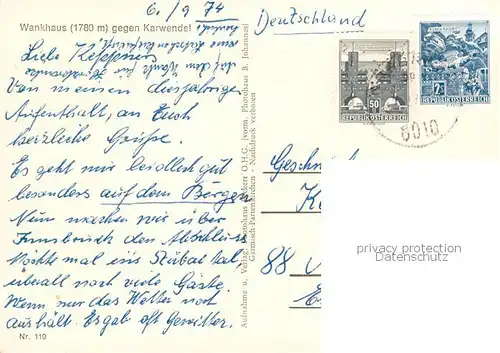 6./9 74
Deutschland
Wankhaus (1780 m) gegen Karwendel
Liebe
Von meinem diesjährigen
Aufenthalt, an Euch
herzliche Grüsse.
Es geht mir leidlich gut
besonders auf dem Bergen
Nun machen wir über
Innsbruck den Abschluss
Möchte mal ins Stubaital,
überall noch viele Gäste.
Wenn nur das Wetter noch
aushält. Es gab oft Gewitter.
Nr. 110
Aufnahme u. Verlag: Photohaus O.H.G., (vorm. Photohaus B. Johannes)
Garmisch-Partenkirchen - Nachdruck verboten
50
REPUBLIK ÖSTERREICH
2
REPUBLIK ÖSTERREICH
6010
88
privacy protection
Datenschutz